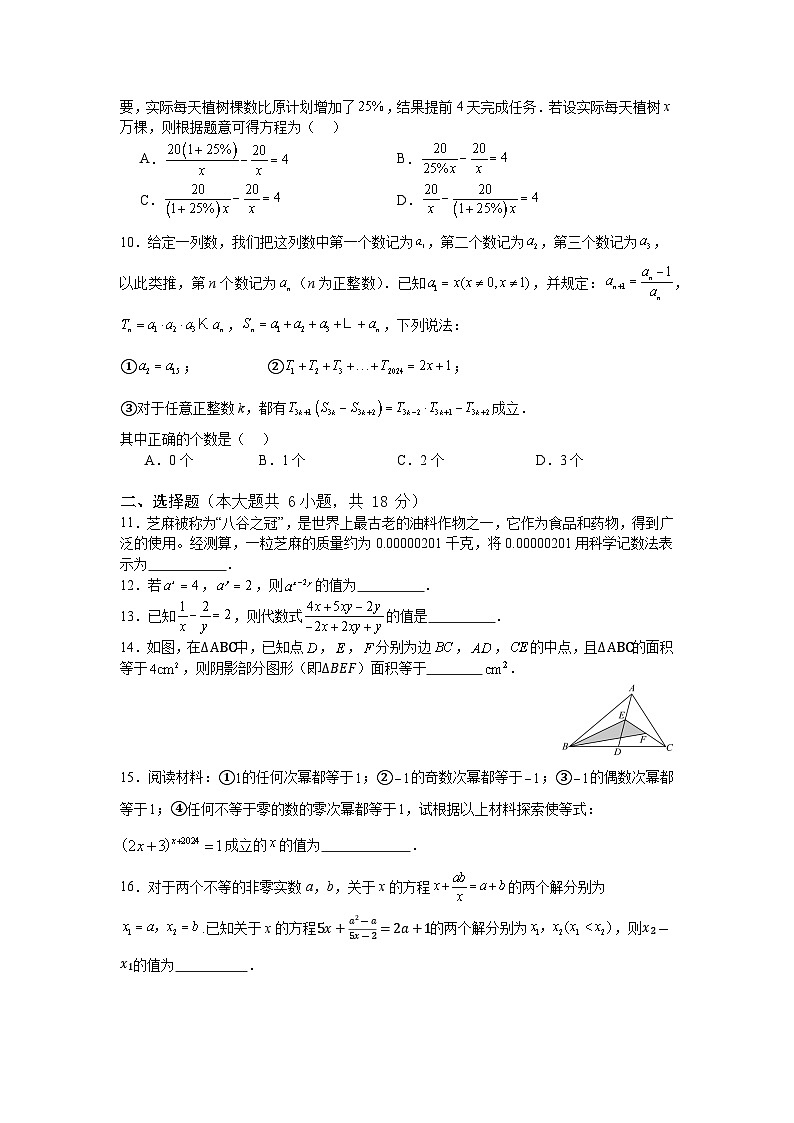 要,实际每天植树棵数比原计划增加了25%,结果提前4天完成任务.若设实际每天植树x
万棵，则根据题意可得方程为（　）
A. \frac{20(1+25%)}{x}-\frac{20}{x}=4　B. \frac{20}{25%x}-\frac{20}{x}=4
C. \frac{20}{(1+25%)x}-\frac{20}{x}=4　D. \frac{20}{x}-\frac{20}{(1+25%)x}=4
10.给定一列数，我们把这列数中第一个数记为a₁，第二个数记为a₂，第三个数记为a₃，
以此类推，第n个数记为aₙ（n为正整数）.已知a₁=x(x≠0,x≠1)，并规定：a_{n+1}=\frac{aₙ-1}{aₙ}，
Tₙ=a₁·a₂·a₃K aₙ，Sₙ=a₁+a₂+a₃+L+aₙ，下列说法：
①a₂=a₁₅；　②T₁+T₂+T₃+…+T₂₀₂₄=2x+1；
③对于任意正整数k，都有T_{3k+1}(S_{3k}-S_{3k+2})=T_{3k-2}·T_{3k+1}-T_{3k+2}成立.
其中正确的个数是（　）
A.0个　B.1个　C.2个　D.3个
二、选择题（本大题共 6小题，共 18 分）
11.芝麻被称为“八谷之冠”，是世界上最古老的油料作物之一，它作为食品和药物，得到广
泛的使用。经测算，一粒芝麻的质量约为0.00000201千克，将0.00000201用科学记数法表
示为__________.
12.若aˣ=4，aʸ=2，则a^{x-2y}的值为_________.
13.已知\frac{1}{x}-\frac{2}{y}=2，则代数式\frac{4x+5xy-2y}{-2x+2xy+y}的值是_________.
14.如图，在ΔABC中，已知点D，E，F分别为边BC，AD，CE的中点，且ΔABC的面积
等于4cm²，则阴影部分图形（即ΔBEF）面积等于_______cm².
A
E
F
B
D
C
15.阅读材料：①1的任何次幂都等于1；②-1的奇数次幂都等于-1；③-1的偶数次幂都
等于1；④任何不等于零的数的零次幂都等于1，试根据以上材料探索使等式：
(2x+3)^{x+2024}=1成立的x的值为____________.
16.对于两个不等的非零实数a，b，关于x的方程x+\frac{ab}{x}=a+b的两个解分别为
x₁=a，x₂=b.已知关于x的方程5x+\frac{a²-a}{5x-2}=2a+1的两个解分别为x₁，x₂(x₁<x₂)，则x₂-
x₁的值为__________.